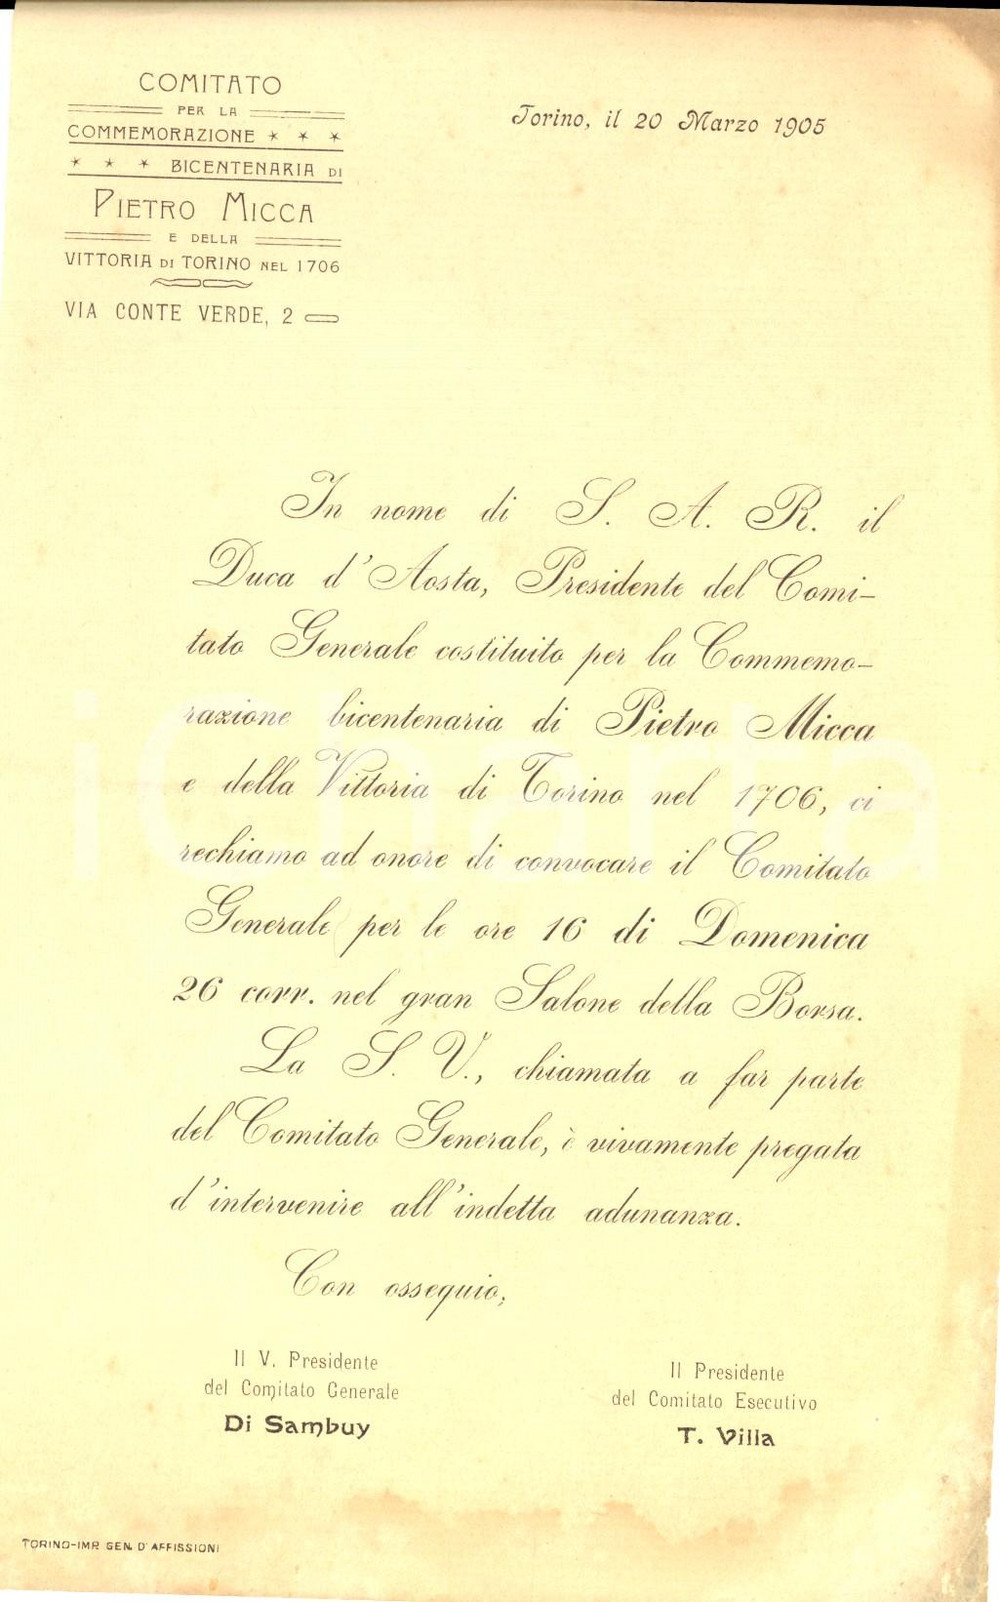 COMITATO
PER LA
COMMEMORAZIONE * * *
* * * BICENTENARIA DI
PIETRO MICCA
E DELLA
VITTORIA DI TORINO NEL 1706
VIA CONTE VERDE, 2
Torino, il 20 Marzo 1905
In nome di S. A. R. il
Duca d'Aosta, Presidente del Comi-
tato Generale costituito per la Commemo-
razione bicentenaria di Pietro Micca
e della Vittoria di Torino nel 1706, ci
rechiamo ad onore di convocare il Comitato
Generale per le ore 16 di Domenica
26 corr. nel gran Salone della Borsa.
La S. V., chiamata a far parte
del Comitato Generale, è vivamente pregata
d'intervenire all'indetta adunanza.
Con ossequio,
Il V. Presidente
del Comitato Generale
Di Sambuy
Il Presidente
del Comitato Esecutivo
T. Villa
TORINO-IMP. GEN. D'AFFISSIONI